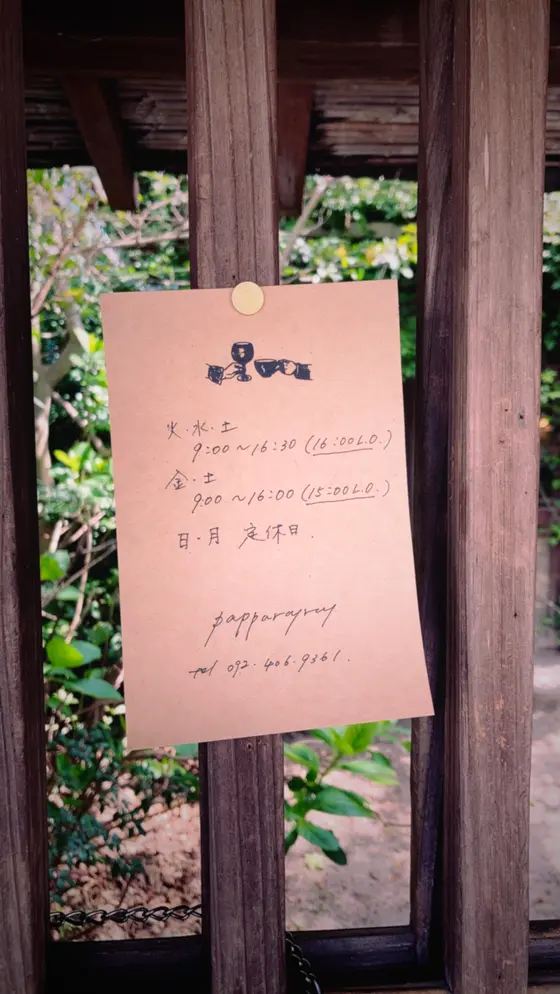 火・水・土
9:00 ~ 16:30 (16:00 L.O.)
金・土
9:00 ~ 16:00 (15:00 L.O.)
日・月 定休日.
tel 092. 406. 9361.